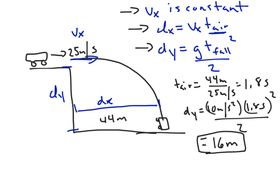 → Vx is constant
→ dx = Vx tair
→ dy = g tfall²
2
Vx
→ 25m/s
dy
dx
44m
tair = 44m = 1.8s
25m/s
dy = (10m/s²)(1.8s)²
2
= 16m